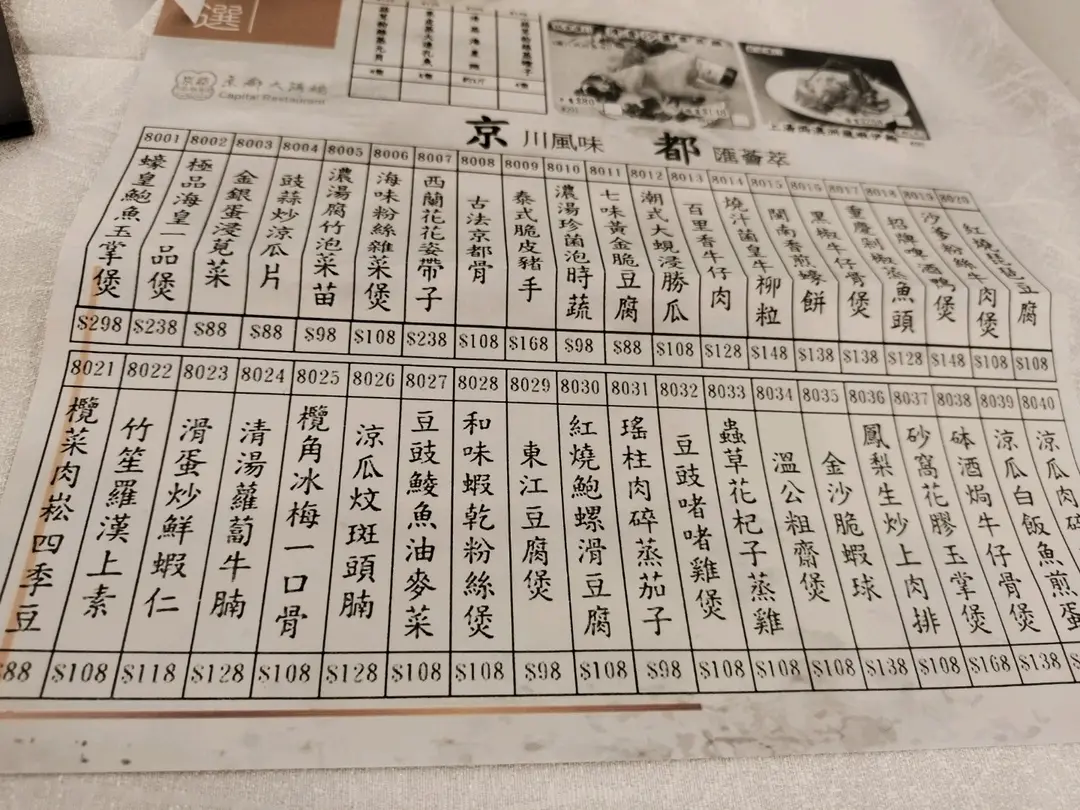 選
京都大酒樓
Capital Restaurant
京 川風味 都 匯薈萃
8001 8002 8003 8004 8005 8006 8007 8008 8009 8010 8011 8012 8013 8014 8015 8016 8017 8018 8019 8020
蠔皇鮑魚玉掌煲
極品海皇一品煲
金銀蛋浸莧菜
豉蒜炒涼瓜片
濃湯腐竹泡菜苗
海味粉絲雜菜煲
西蘭花花姿帶子
古法京都骨
泰式脆皮豬手
濃湯珍菌泡時蔬
七味黃金脆豆腐
潮式大蜆浸勝瓜
百里香牛仔肉
燒汁菌皇牛柳粒
閩南香煎蠔餅
黑椒牛仔骨煲
重慶剁椒蒸魚頭
招牌啤酒鴨煲
沙爹粉絲牛肉煲
紅燒琵琶豆腐
$298 $238 $88 $88 $98 $108 $238 $108 $168 $98 $88 $108 $128 $148 $138 $138 $128 $148 $108 $108
8021 8022 8023 8024 8025 8026 8027 8028 8029 8030 8031 8032 8033 8034 8035 8036 8037 8038 8039 8040
欖菜肉崧四季豆
竹笙羅漢上素
滑蛋炒鮮蝦仁
清湯蘿蔔牛腩
欖角冰梅一口骨
涼瓜炆斑頭腩
豆豉鯪魚油麥菜
和味蝦乾粉絲煲
東江豆腐煲
紅燒鮑螺滑豆腐
瑤柱肉碎蒸茄子
豆豉啫啫雞煲
蟲草花杞子蒸雞
溫公粗齋煲
金沙脆蝦球
鳳梨生炒上肉排
砂窩花膠玉掌煲
砵酒焗牛仔骨煲
涼瓜白飯魚煎蛋
涼瓜肉碎
$88 $108 $118 $128 $108 $128 $108 $108 $98 $108 $98 $108 $108 $108 $138 $108 $168 $138